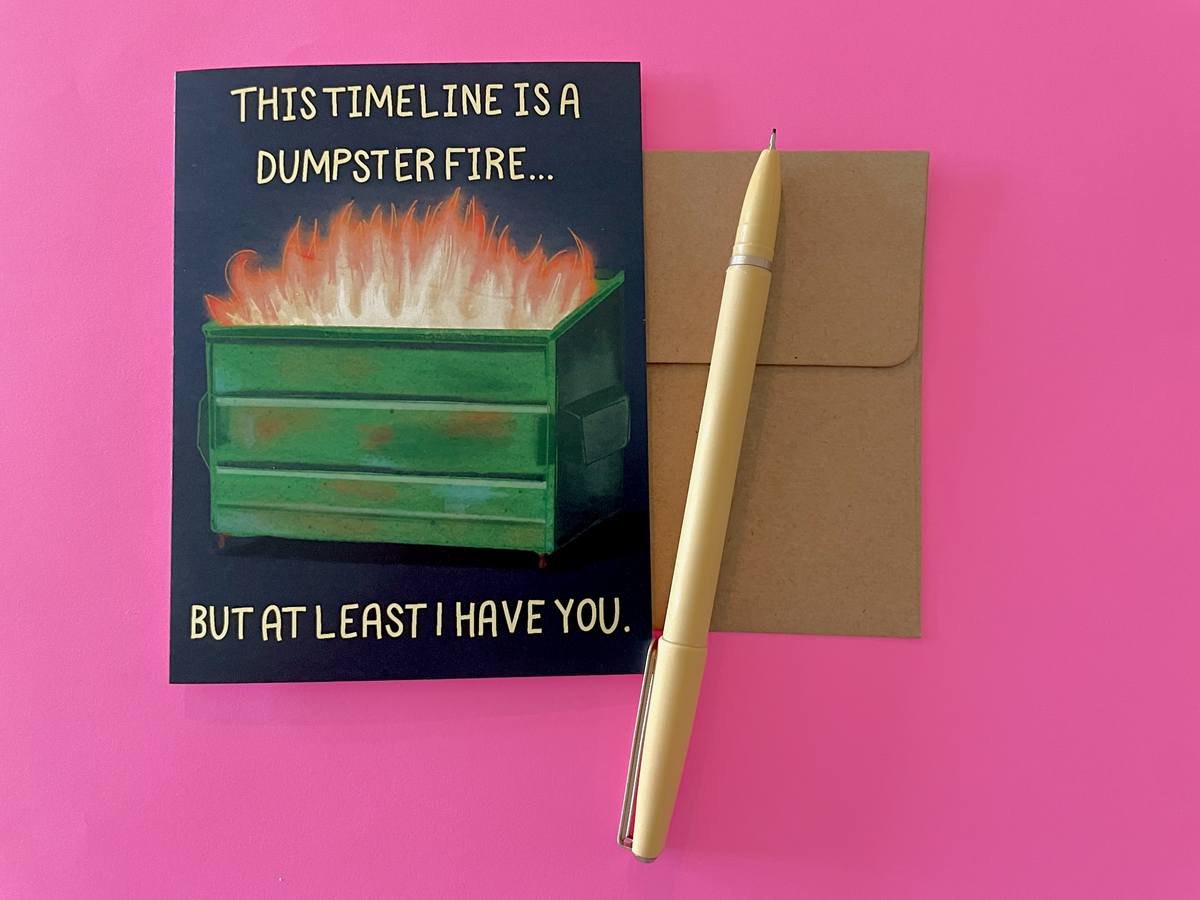 THIS TIMELINE IS A
DUMPSTER FIRE...
BUT AT LEAST I HAVE YOU.